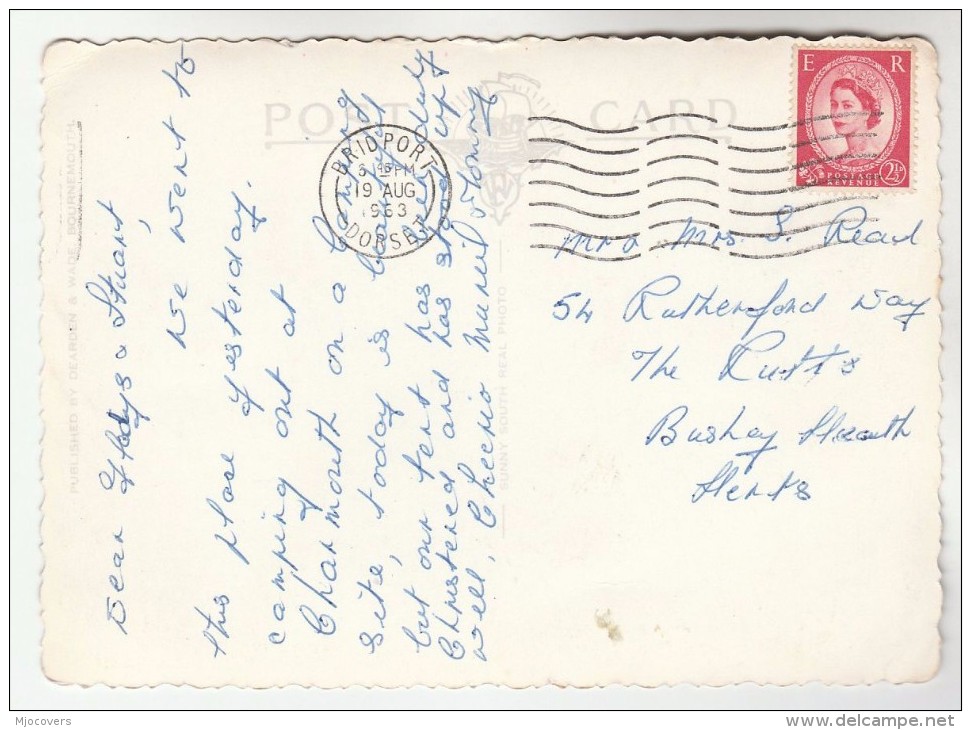 POST CARD
E R
POSTAGE REVENUE 2½D
BRIDPORT
6 45 PM
19 AUG
1963
DORSET
PUBLISHED BY DEARDEN & WADE, BOURNEMOUTH.
SUNNY SOUTH REAL PHOTO
Dear Gladys & Stuart,
We went to
this place yesterday.
camping out at
Charmouth on a Camping
site, today is backfull
but our tent has been duly
Christened and has stood up
well, Cheerio Muriel & Tommy
Mr & Mrs. S. Read
54 Rutherford Way
The Rutts
Bushey Heath
Herts
Mjocovers
www.delcampe.net